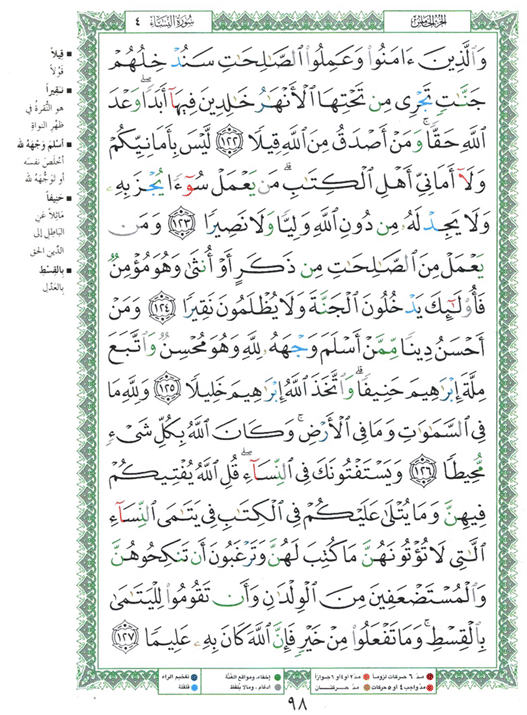 سُورَةُ النِّسَاءِ ٤
الجُزْءُ الخَامِسُ
وَالَّذِينَ ءَامَنُوا وَعَمِلُوا الصَّالِحَاتِ سَنُدْخِلُهُمْ
جَنَّاتٍ تَجْرِي مِن تَحْتِهَا الْأَنْهَارُ خَالِدِينَ فِيهَا أَبَدًا وَعْدَ
اللَّهِ حَقًّا وَمَنْ أَصْدَقُ مِنَ اللَّهِ قِيلًا ١٢٢ لَّيْسَ بِأَمَانِيِّكُمْ
وَلَا أَمَانِيِّ أَهْلِ الْكِتَابِ مَن يَعْمَلْ سُوءًا يُجْزَ بِهِ
وَلَا يَجِدْ لَهُ مِن دُونِ اللَّهِ وَلِيًّا وَلَا نَصِيرًا ١٢٣ وَمَن
يَعْمَلْ مِنَ الصَّالِحَاتِ مِن ذَكَرٍ أَوْ أُنثَى وَهُوَ مُؤْمِنٌ
فَأُولَٰئِكَ يَدْخُلُونَ الْجَنَّةَ وَلَا يُظْلَمُونَ نَقِيرًا ١٢٤ وَمَنْ
أَحْسَنُ دِينًا مِّمَّنْ أَسْلَمَ وَجْهَهُ لِلَّهِ وَهُوَ مُحْسِنٌ وَاتَّبَعَ
مِلَّةَ إِبْرَاهِيمَ حَنِيفًا وَاتَّخَذَ اللَّهُ إِبْرَاهِيمَ خَلِيلًا ١٢٥ وَلِلَّهِ مَا
فِي السَّمَاوَاتِ وَمَا فِي الْأَرْضِ وَكَانَ اللَّهُ بِكُلِّ شَيْءٍ
مُّحِيطًا ١٢٦ وَيَسْتَفْتُونَكَ فِي النِّسَاءِ قُلِ اللَّهُ يُفْتِيكُمْ
فِيهِنَّ وَمَا يُتْلَى عَلَيْكُمْ فِي الْكِتَابِ فِي يَتَامَى النِّسَاءِ
الَّتِي لَا تُؤْتُونَهُنَّ مَا كُتِبَ لَهُنَّ وَتَرْغَبُونَ أَن تَنكِحُوهُنَّ
وَالْمُسْتَضْعَفِينَ مِنَ الْوِلْدَانِ وَأَن تَقُومُوا لِلْيَتَامَى
بِالْقِسْطِ وَمَا تَفْعَلُوا مِنْ خَيْرٍ فَإِنَّ اللَّهَ كَانَ بِهِ عَلِيمًا ١٢٧
■ قِيلًا
قَوْلًا
■ نَقِيرًا
هو النُّقرةُ في
ظَهْرِ النواةِ
■ أسْلَمَ وَجْهَهُ لله
أخْلَصَ نفسَه
أو توجُّهَهُ لله
■ حَنِيفًا
مَائِلًا عَنِ
البَاطِلِ إلى
الدِّينِ الحق
■ بالقِسْطِ
بِالعَدْلِ
مدّ ٦ حركات لزوماً
مدّ ٢ او ٤ او ٦ جوازاً
مدّ واجب ٤ او ٥ حركات
مدّ حركتان
إخفاء، ومواقع الغُنَّة
ادغام، وما لا يُلفَظ
تفخيم الراء
قلقلة
٩٨